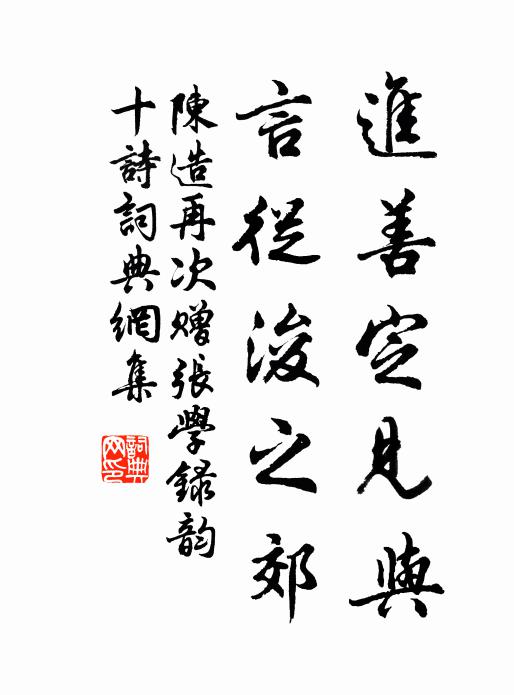 進善定見與
言從浚之郊
陳造再次贈張學録韵
十詩詞典網集
詞典
网印